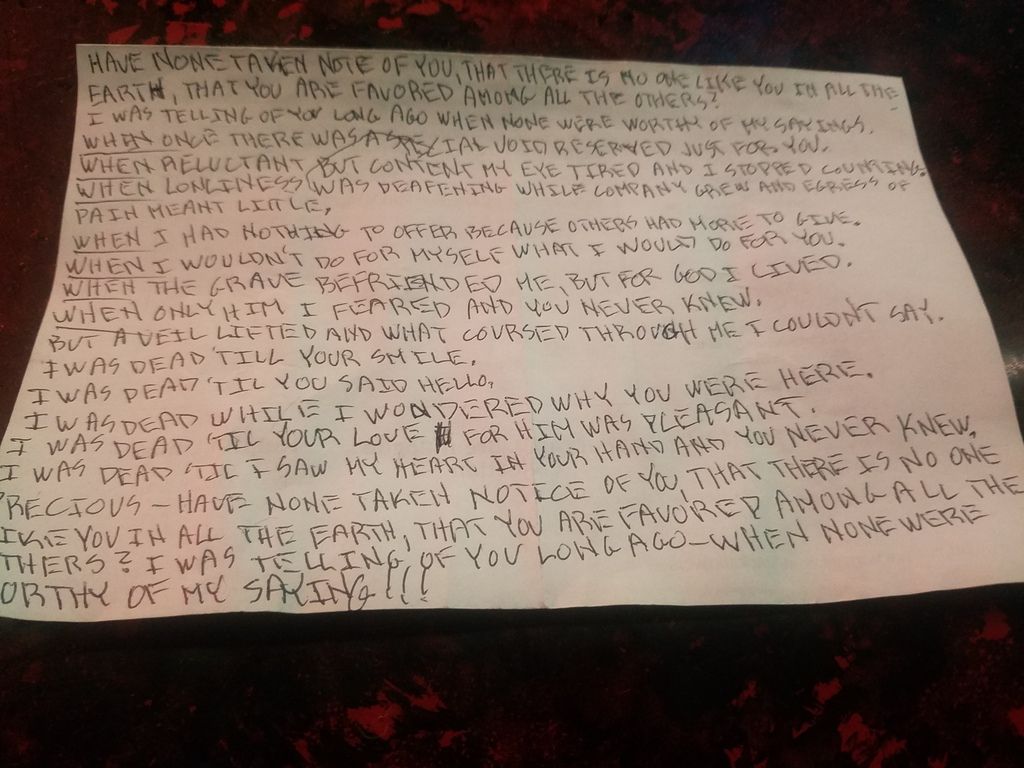 HAVE NONE TAKEN NOTE OF YOU, THAT THERE IS NO ONE LIKE YOU IN ALL THE
EARTH, THAT YOU ARE FAVORED AMONG ALL THE OTHERS?
I WAS TELLING OF YOU LONG AGO WHEN NONE WERE WORTHY OF MY SAYINGS.
WHEN ONCE THERE WAS A SPECIAL VOID RESERVED JUST FOR YOU.
WHEN RELUCTANT BUT CONTENT MY EYE TIRED AND I STOPPED COUNTING.
WHEN LONLINESS WAS DEAFENING WHILE COMPANY GREW AND EGRESS OF
PAIN MEANT LITTLE,
WHEN I HAD NOTHING TO OFFER BECAUSE OTHERS HAD MORE TO GIVE.
WHEN I WOULDN'T DO FOR MYSELF WHAT I WOULD DO FOR YOU.
WHEN THE GRAVE BEFRIENDED ME, BUT FOR GOD I LIVED.
WHEN ONLY HIM I FEARED AND YOU NEVER KNEW.
BUT A VEIL LIFTED AND WHAT COURSED THROUGH ME I COULDN'T SAY.
I WAS DEAD 'TILL YOUR SMILE.
I WAS DEAD 'TIL YOU SAID HELLO,
I WAS DEAD WHILE I WONDERED WHY YOU WERE HERE.
I WAS DEAD 'TIL YOUR LOVE FOR HIM WAS PLEASANT.
I WAS DEAD 'TIL I SAW MY HEART IN YOUR HAND AND YOU NEVER KNEW,
PRECIOUS - HAVE NONE TAKEN NOTICE OF YOU, THAT THERE IS NO ONE
IKE YOU IN ALL THE EARTH, THAT YOU ARE FAVORED AMONG ALL THE
THERS? I WAS TELLING OF YOU LONG AGO - WHEN NONE WERE
ORTHY OF MY SAYING!!!